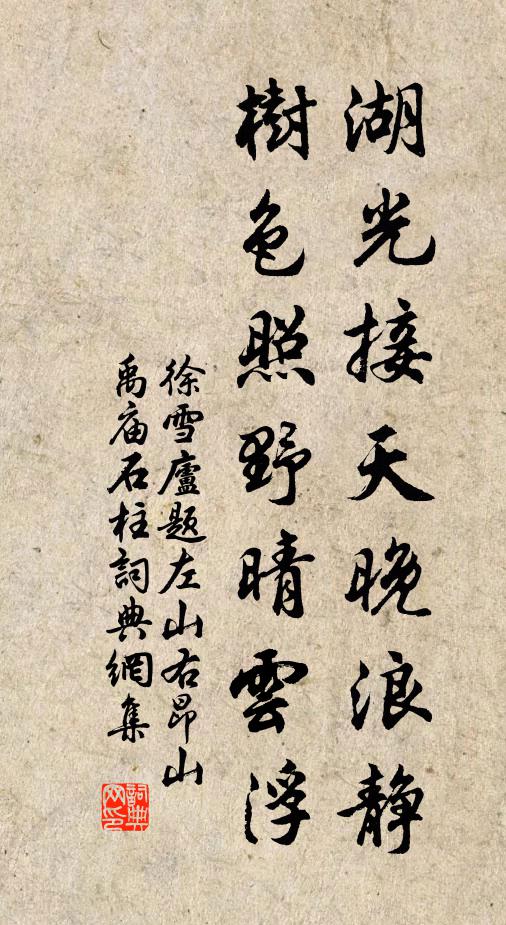 湖光接天晚浪静
樹色照野晴雲浮
徐雪廬题左山右昂山
禹庙石柱詞典網集
詞典
网印